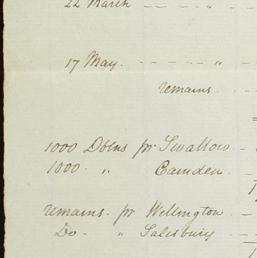 22 March "
17 May. "
remains
1000 Dolns pr Swallow
1000. " Camden
remains. pr Wellington
Do. " Salesbury